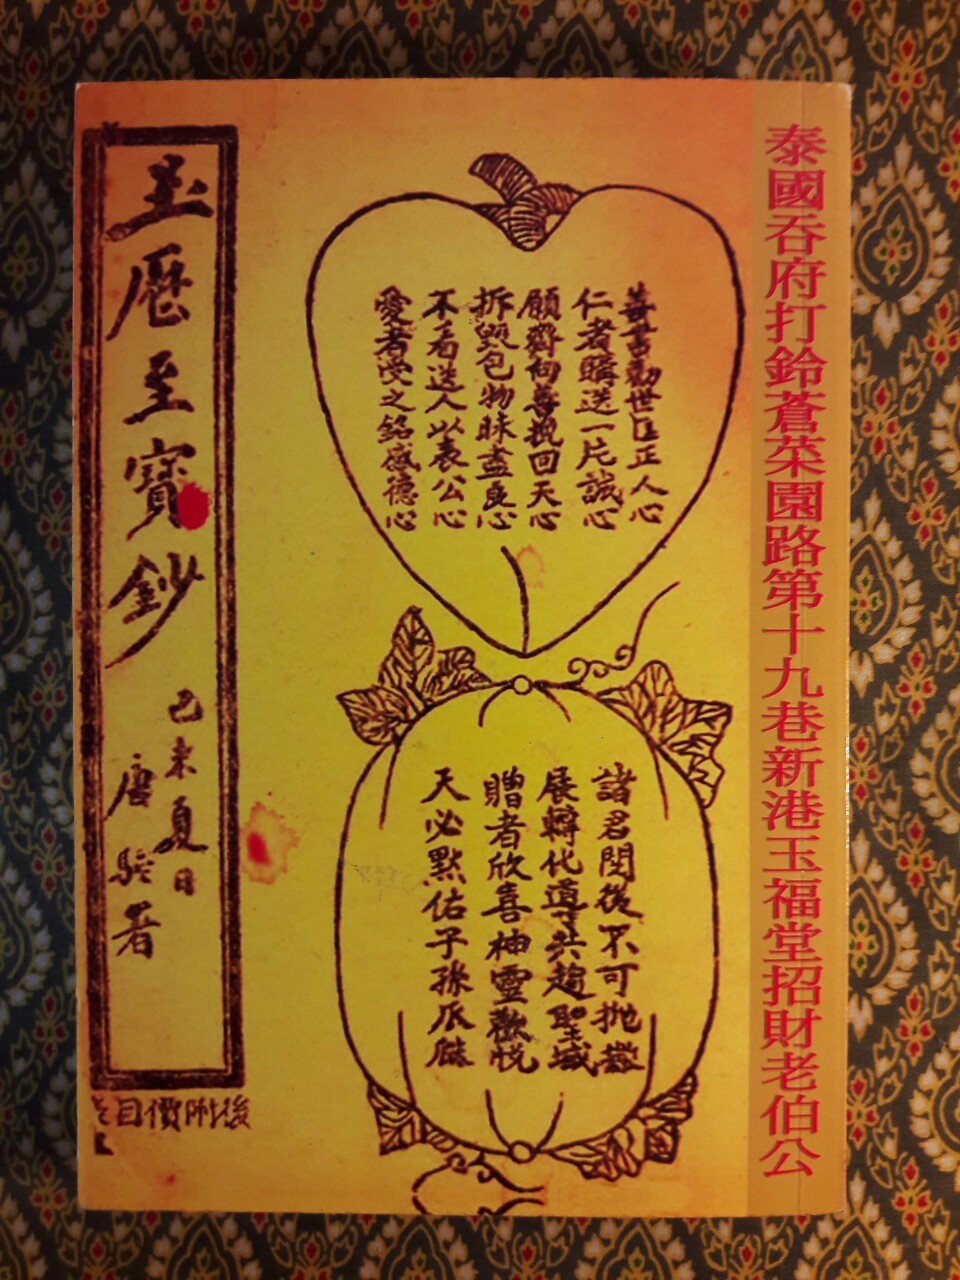 泰國吞府打鈴蒼菜園路第十九巷新港玉福堂招財老伯公
善書勸世匡正人心
仁者購送一片誠心
願齊向善挽回天心
拆毀包物昧盡良心
不看送人以表公心
愛者受之銘感德心
諸君閱後不可拋撒
展轉化導共趨聖域
贈者欣喜神靈歡悅
天必默佑子孫瓜瓞
玉歷至寶鈔
己未夏日
唐駝署
後附價目